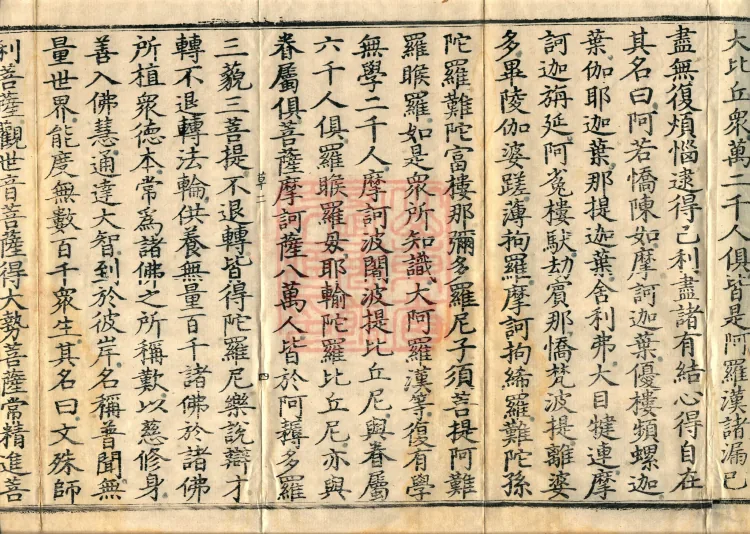 大比丘衆萬二千人俱皆是阿羅漢諸漏已
盡無復煩惱逮得己利盡諸有結心得自在
其名曰阿若憍陳如摩訶迦葉優樓頻螺迦
葉伽耶迦葉那提迦葉舍利弗大目犍連摩
訶迦旃延阿㝹樓馱劫賓那憍梵波提離婆
多畢陵伽婆蹉薄拘羅摩訶拘絺羅難陀孫
陀羅難陀富樓那彌多羅尼子須菩提阿難
羅睺羅如是衆所知識大阿羅漢等復有學
無學二千人摩訶波闍波提比丘尼與眷屬
六千人俱羅睺羅母耶輸陀羅比丘尼亦與
眷屬俱菩薩摩訶薩八萬人皆於阿耨多羅
草二
四
三藐三菩提不退轉皆得陀羅尼樂說辯才
轉不退轉法輪供養無量百千諸佛於諸佛
所植衆德本常爲諸佛之所稱歎以慈修身
善入佛慧通達大智到於彼岸名稱普聞無
量世界能度無數百千衆生其名曰文殊師
利菩薩觀世音菩薩得大勢菩薩常精進菩